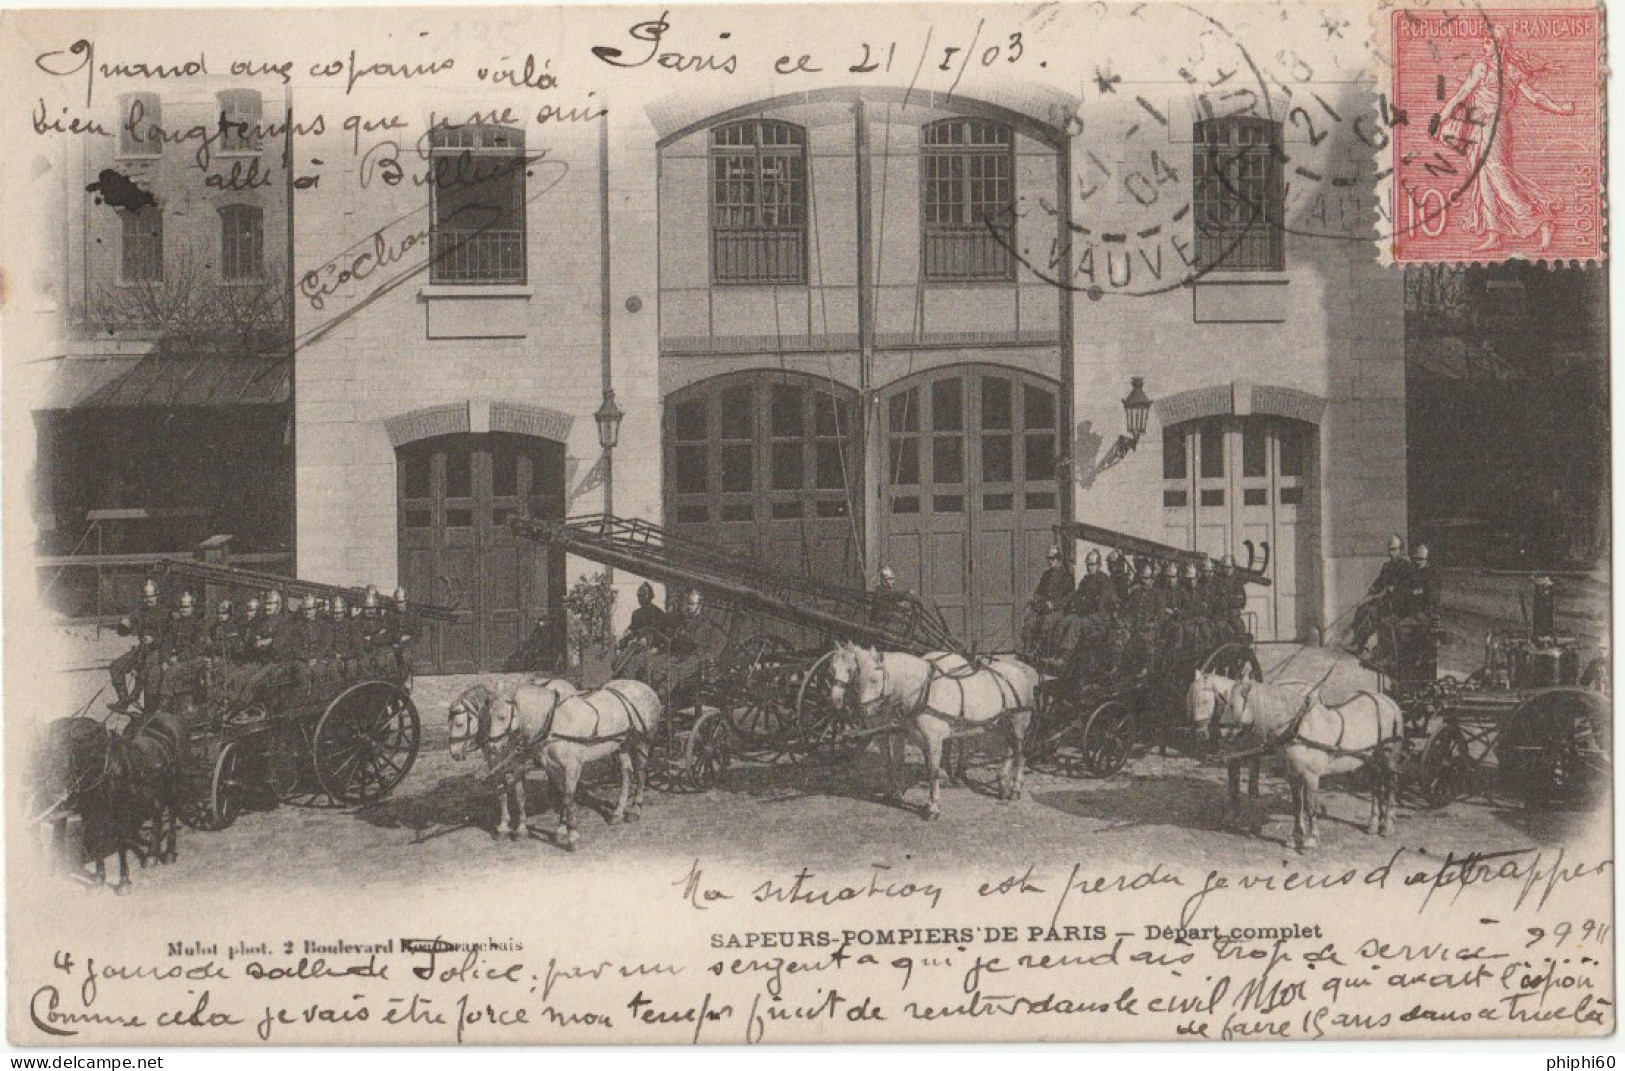 Paris ce 21/1/03.
Quand aux copains voilà
bien longtemps que je ne suis
allé à Bullier.
REPUBLIQUE FRANÇAISE
10
POSTES
21 -1 04
VAUVENAR
Ma situation est perdu je viens d'attrapper
Mulot phot. 2 Boulevard Beaumarchais
SAPEURS-POMPIERS DE PARIS — Départ complet
4 jours de salle de Police, par un sergent a qui je rendais trop de service
Comme cela je vais être forcé mon temps finit de rentrer dans le civil Moi qui avait l'espoir
de faire 15 ans dans ce truc là
phiphi60